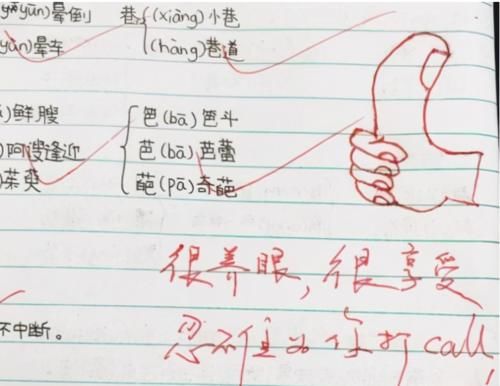 yūn)晕倒 巷 (xiàng)小巷
yùn)晕车 (hàng)巷道
笆(bā)笆斗
逢迎 芭(bā)芭蕾
葩(pā)奇葩
很养眼,很享受
不中断。 忍不住为你打call